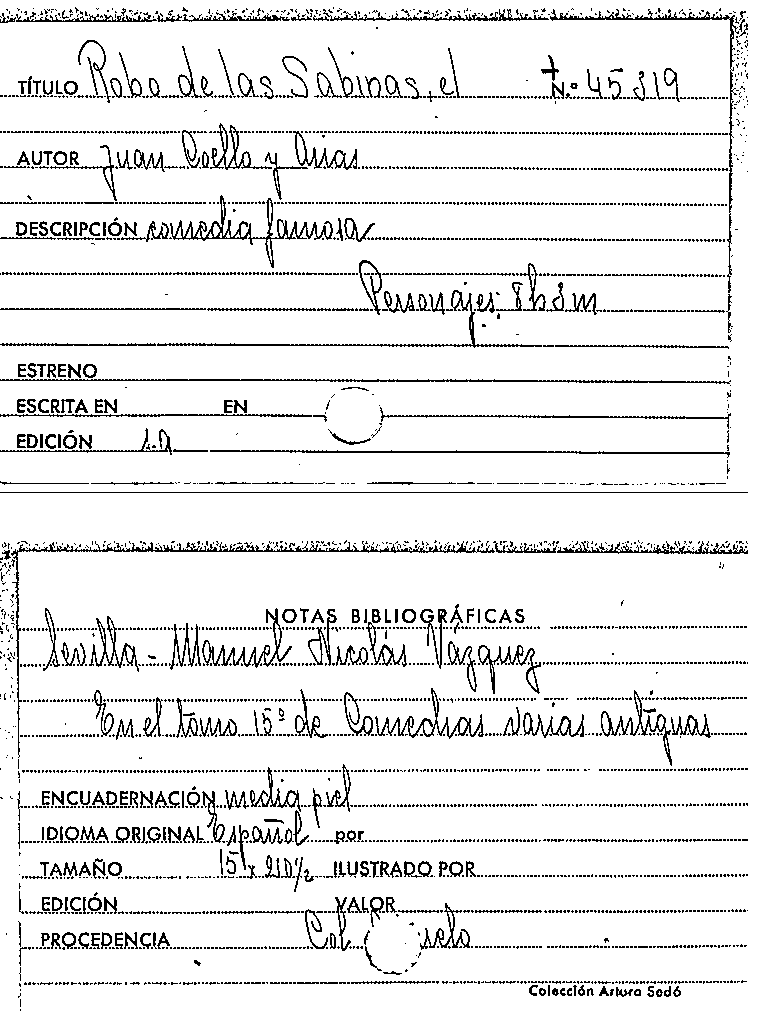 TÍTULO Robo de las Sabinas, el N.º 45819
AUTOR Juan Coello y Arias
DESCRIPCIÓN comedia famosa
Personajes: 8h 3m
ESTRENO
ESCRITA EN EN
EDICIÓN s.a
NOTAS BIBLIOGRÁFICAS
Sevilla - Manuel Nicolás Vázquez
En el tomo 15º de Comedias varias antiguas
ENCUADERNACIÓN media piel
IDIOMA ORIGINAL Español por
TAMAÑO 15 x ILUSTRADO POR
EDICIÓN VALOR
PROCEDENCIA Col
Colección Arturo Sedó